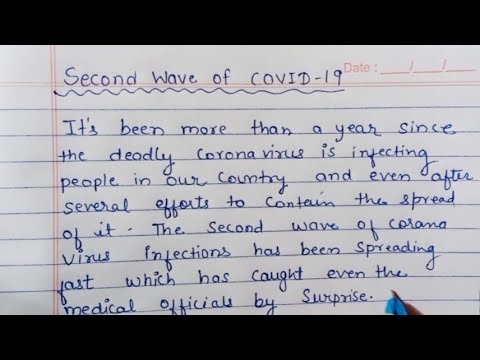 Second Wave of COVID-19
Date : ___/___/___
It's been more than a year since
the deadly coronavirus is infecting
people in our country and even after
several efforts to contain the spread
of it. The second wave of corona
virus infections has been spreading
fast which has caught even the
medical officials by surprise.